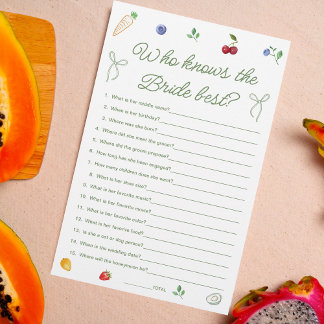 Who knows the
Bride best?
1. What is her middle name?
2. When is her birthday?
3. Where was she born?
4. Where did she meet the groom?
5. Where did the groom propose?
6. How long has she been engaged?
7. How many children does she want?
8. What is her shoe size?
9. What is her favorite music?
10. What is her favorite movie?
11. What is her favorite color?
12. What is her favorite food?
13. Is she a cat or dog person?
14. When is the wedding date?
15. Where will the honeymoon be?
TOTAL